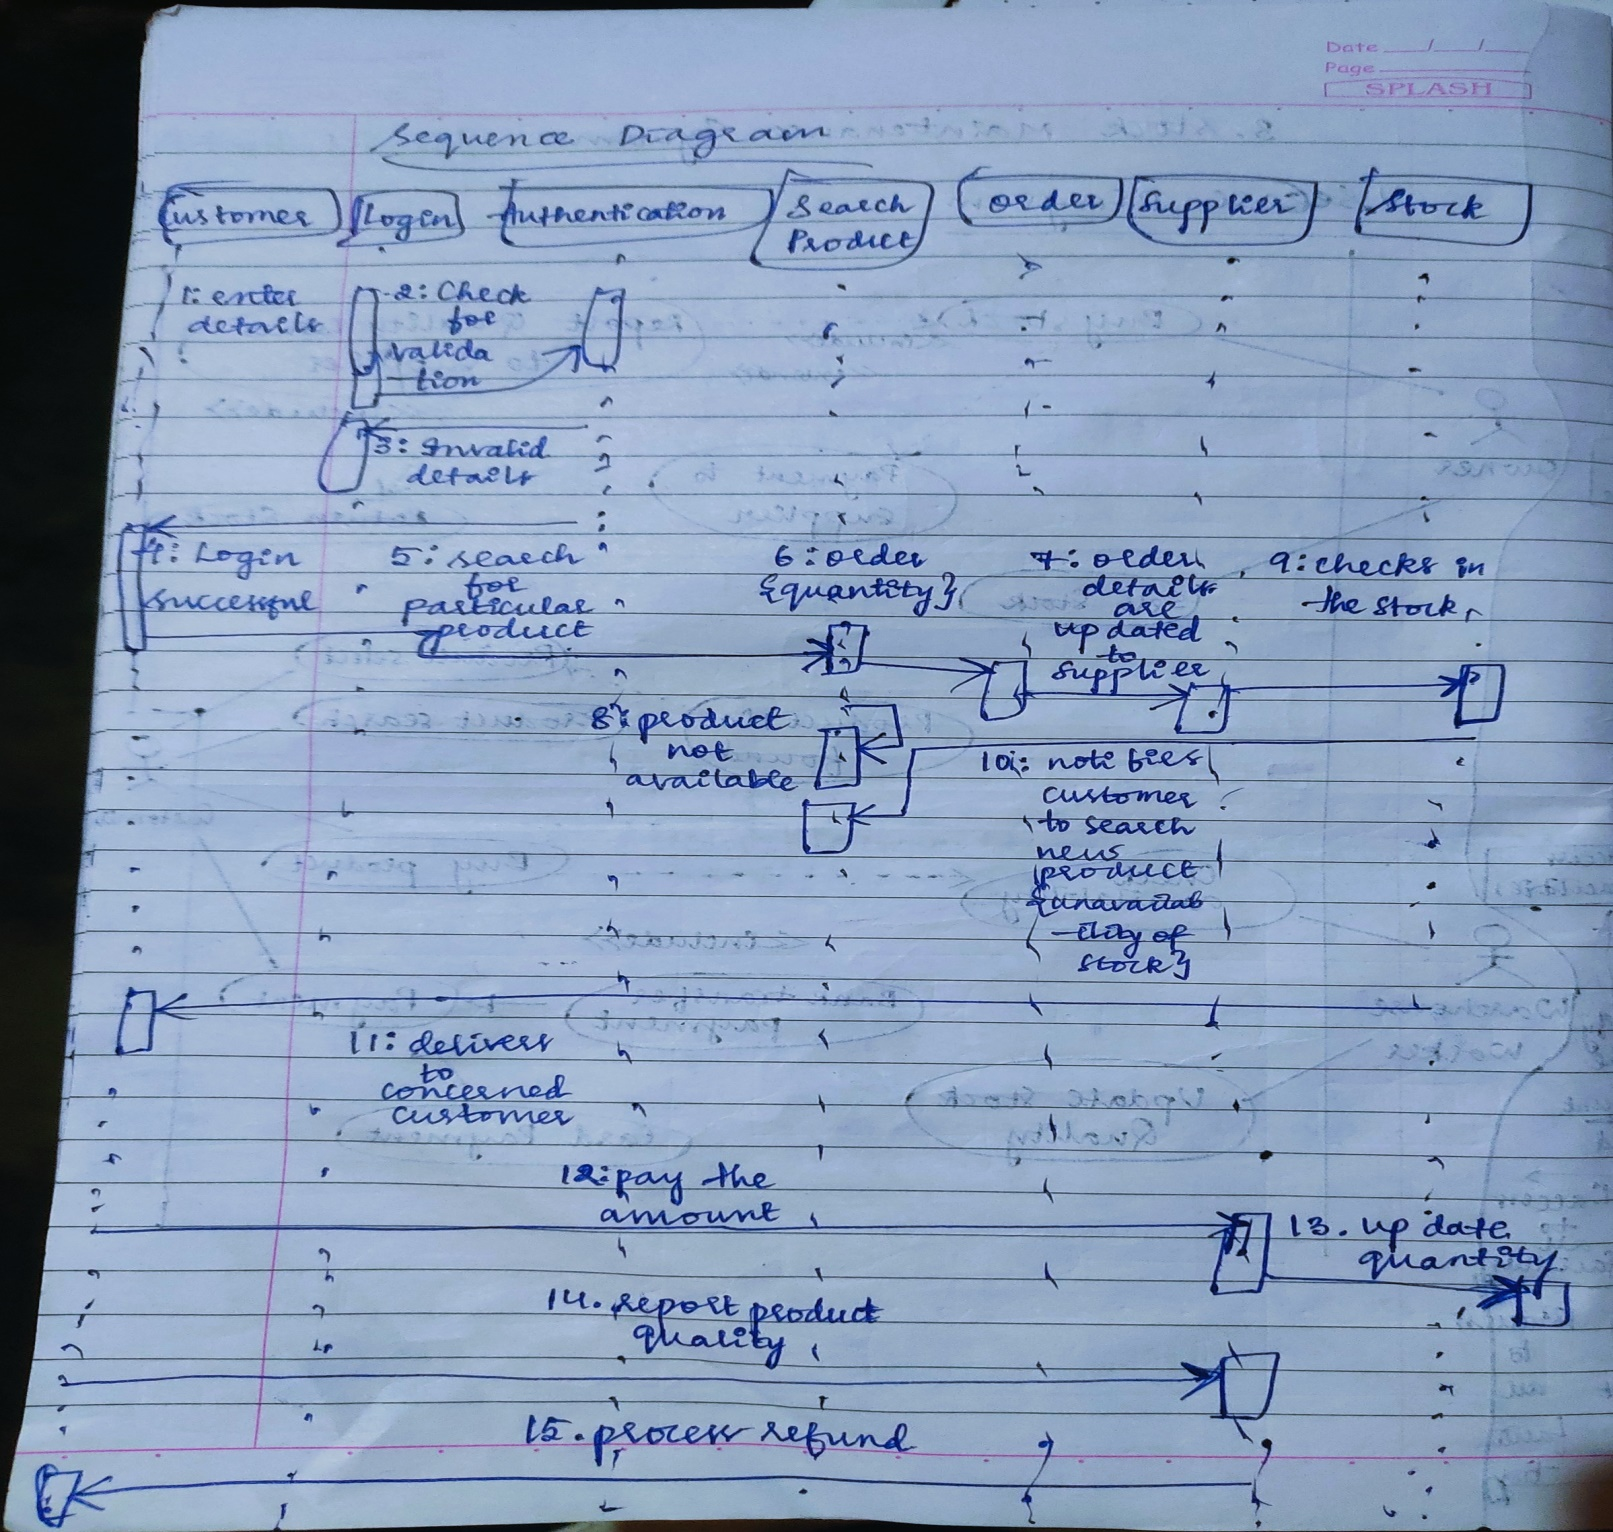 Date
Page
SPLASH
Sequence Diagram
Customer Login Authentication Search Product Order Supplier Stock
1: enter
details
2: Check
for
valida
-tion
3: Invalid
details
4: Login
successful
5: search
for
particular
product
6: order
{quantity}
7: order
details
are
updated
to
supplier
9: checks in
the stock
8: product
not
available
10: notifies
customer
to search
new
product
{unavailab
-ility of
stock}
11: delivers
to
concerned
customer
12: pay the
amount
13. update
quantity
14. report product
quality
15. process refund